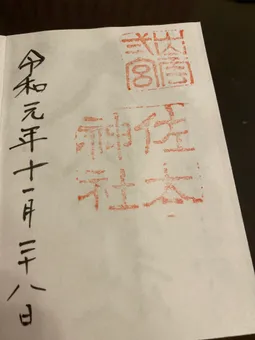 佐太
神社
令和元年十一月二十八日